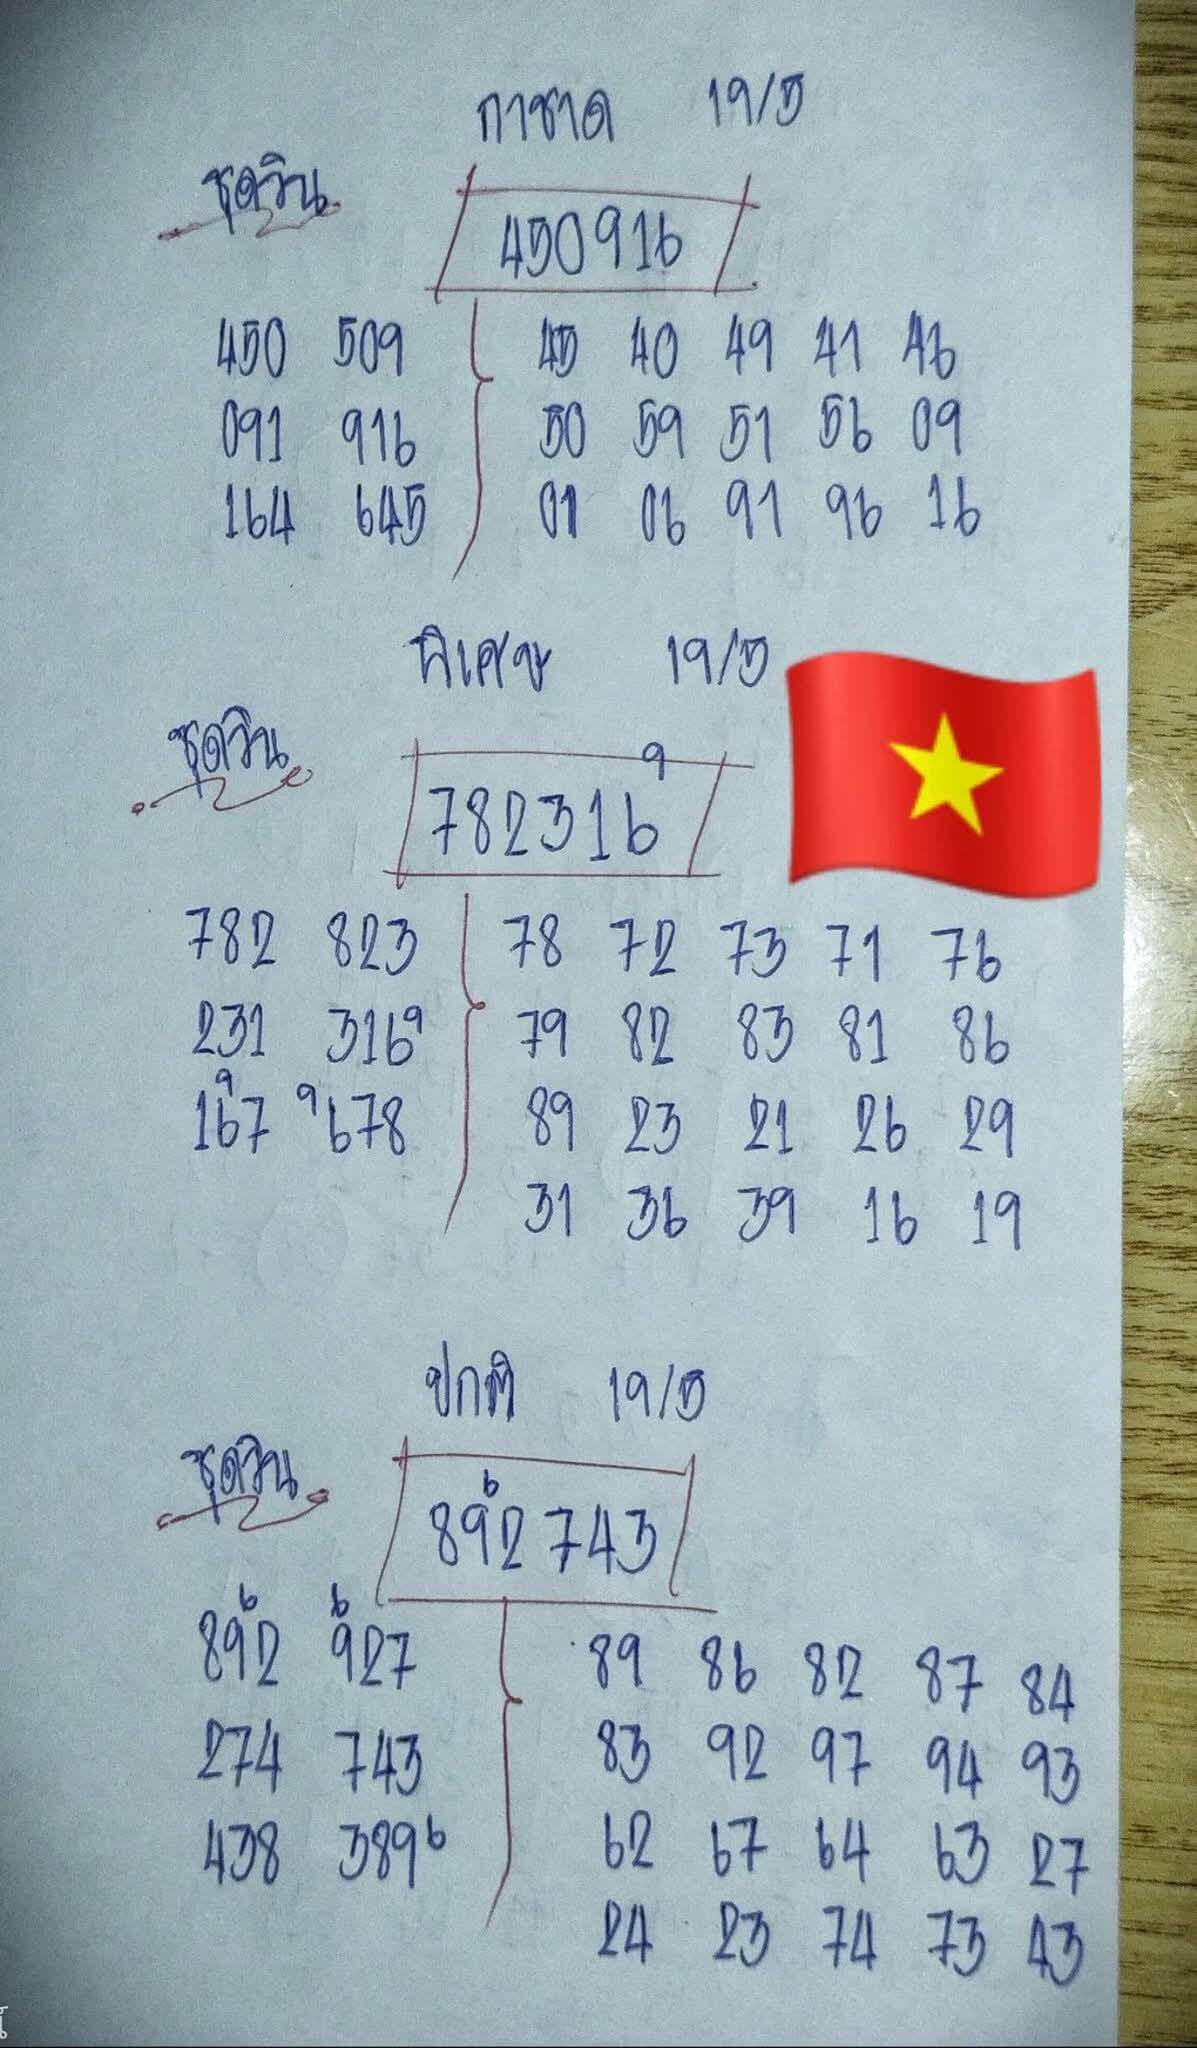 กาชาด 19/5
ชุดวิน
450916
450 509 45 40 49 41 46
091 916 50 59 51 56 09
164 645 01 06 91 96 16
พิเศษ 19/5
ชุดวิน
9
782316
782 823 78 72 73 71 76
231 316 9 79 82 83 81 86
9 9
167 678 89 23 21 26 29
31 36 39 16 19
ปกติ 19/5
ชุดวิน
6
892743
6 6
892 927 89 86 82 87 84
274 743 83 92 97 94 93
438 389 6 62 67 64 63 27
24 23 74 73 43